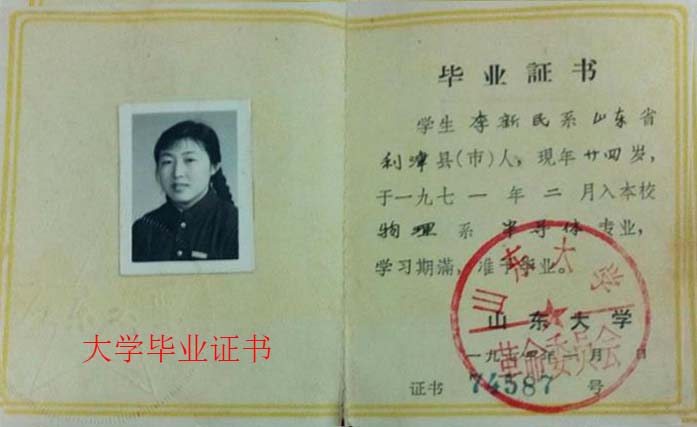 大学毕业证书
毕业証书
学生李新民系山东省
利津县(市)人，現年廿四岁，
于一九七一年二月入本校
物理系半导体专业，
学习期满，准予毕业。
山东大学
一九七四年一月 日
证书 74587 号
山东大学
革命委员会